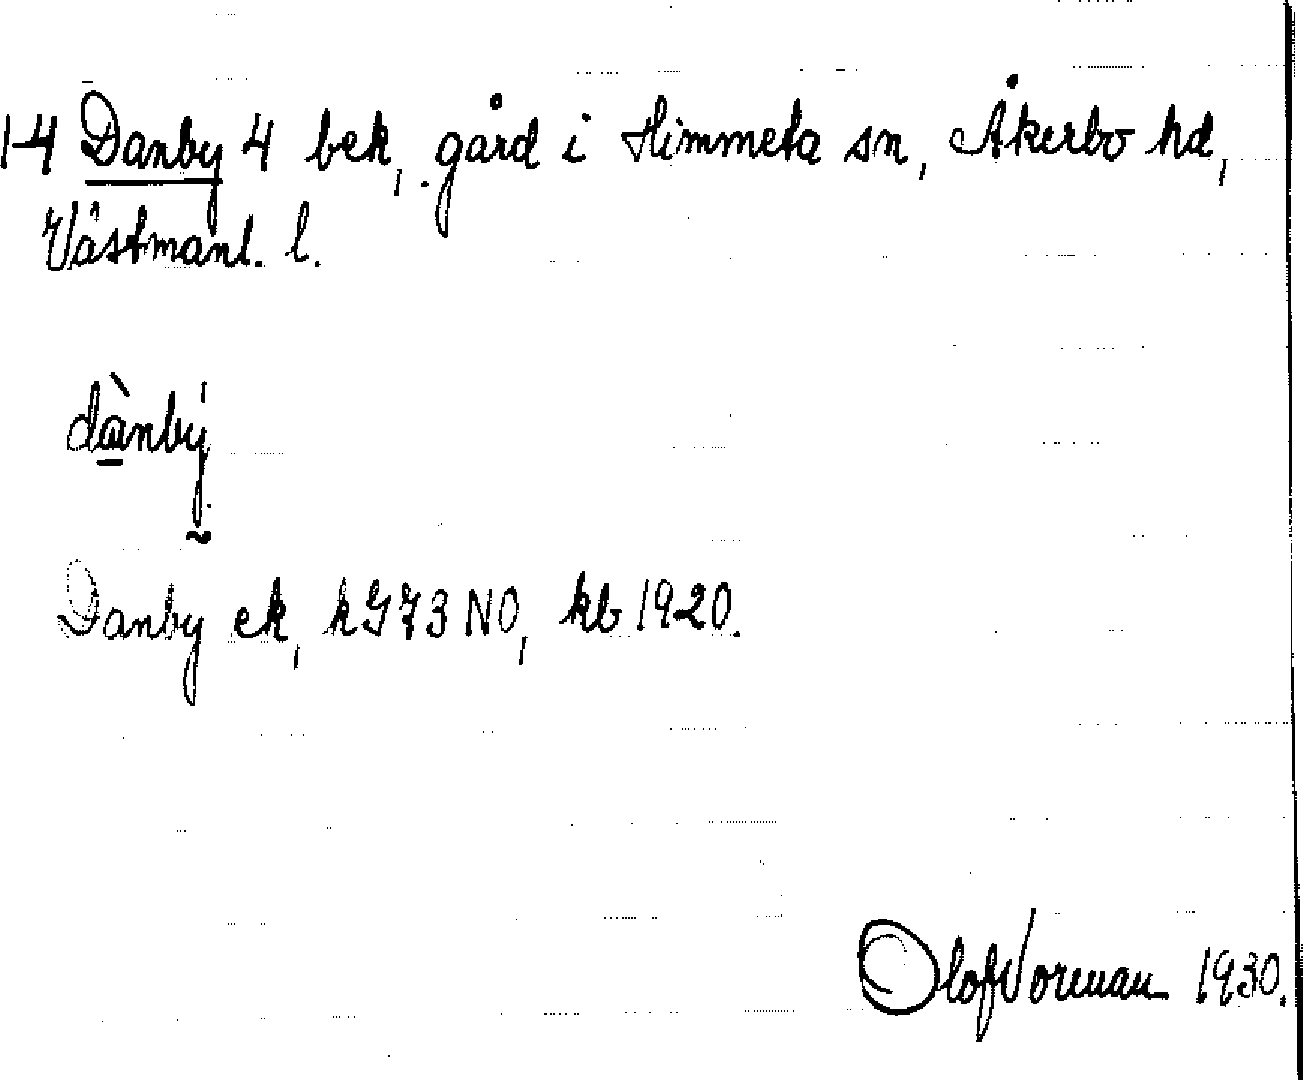 1-4 Danby 4 bek, gård i Himmeta sn, Åkerbo hd,
Västmanl. l.
dànby
Danby ek, kG73 NO, kb 1920.
Olof Norman 1930.